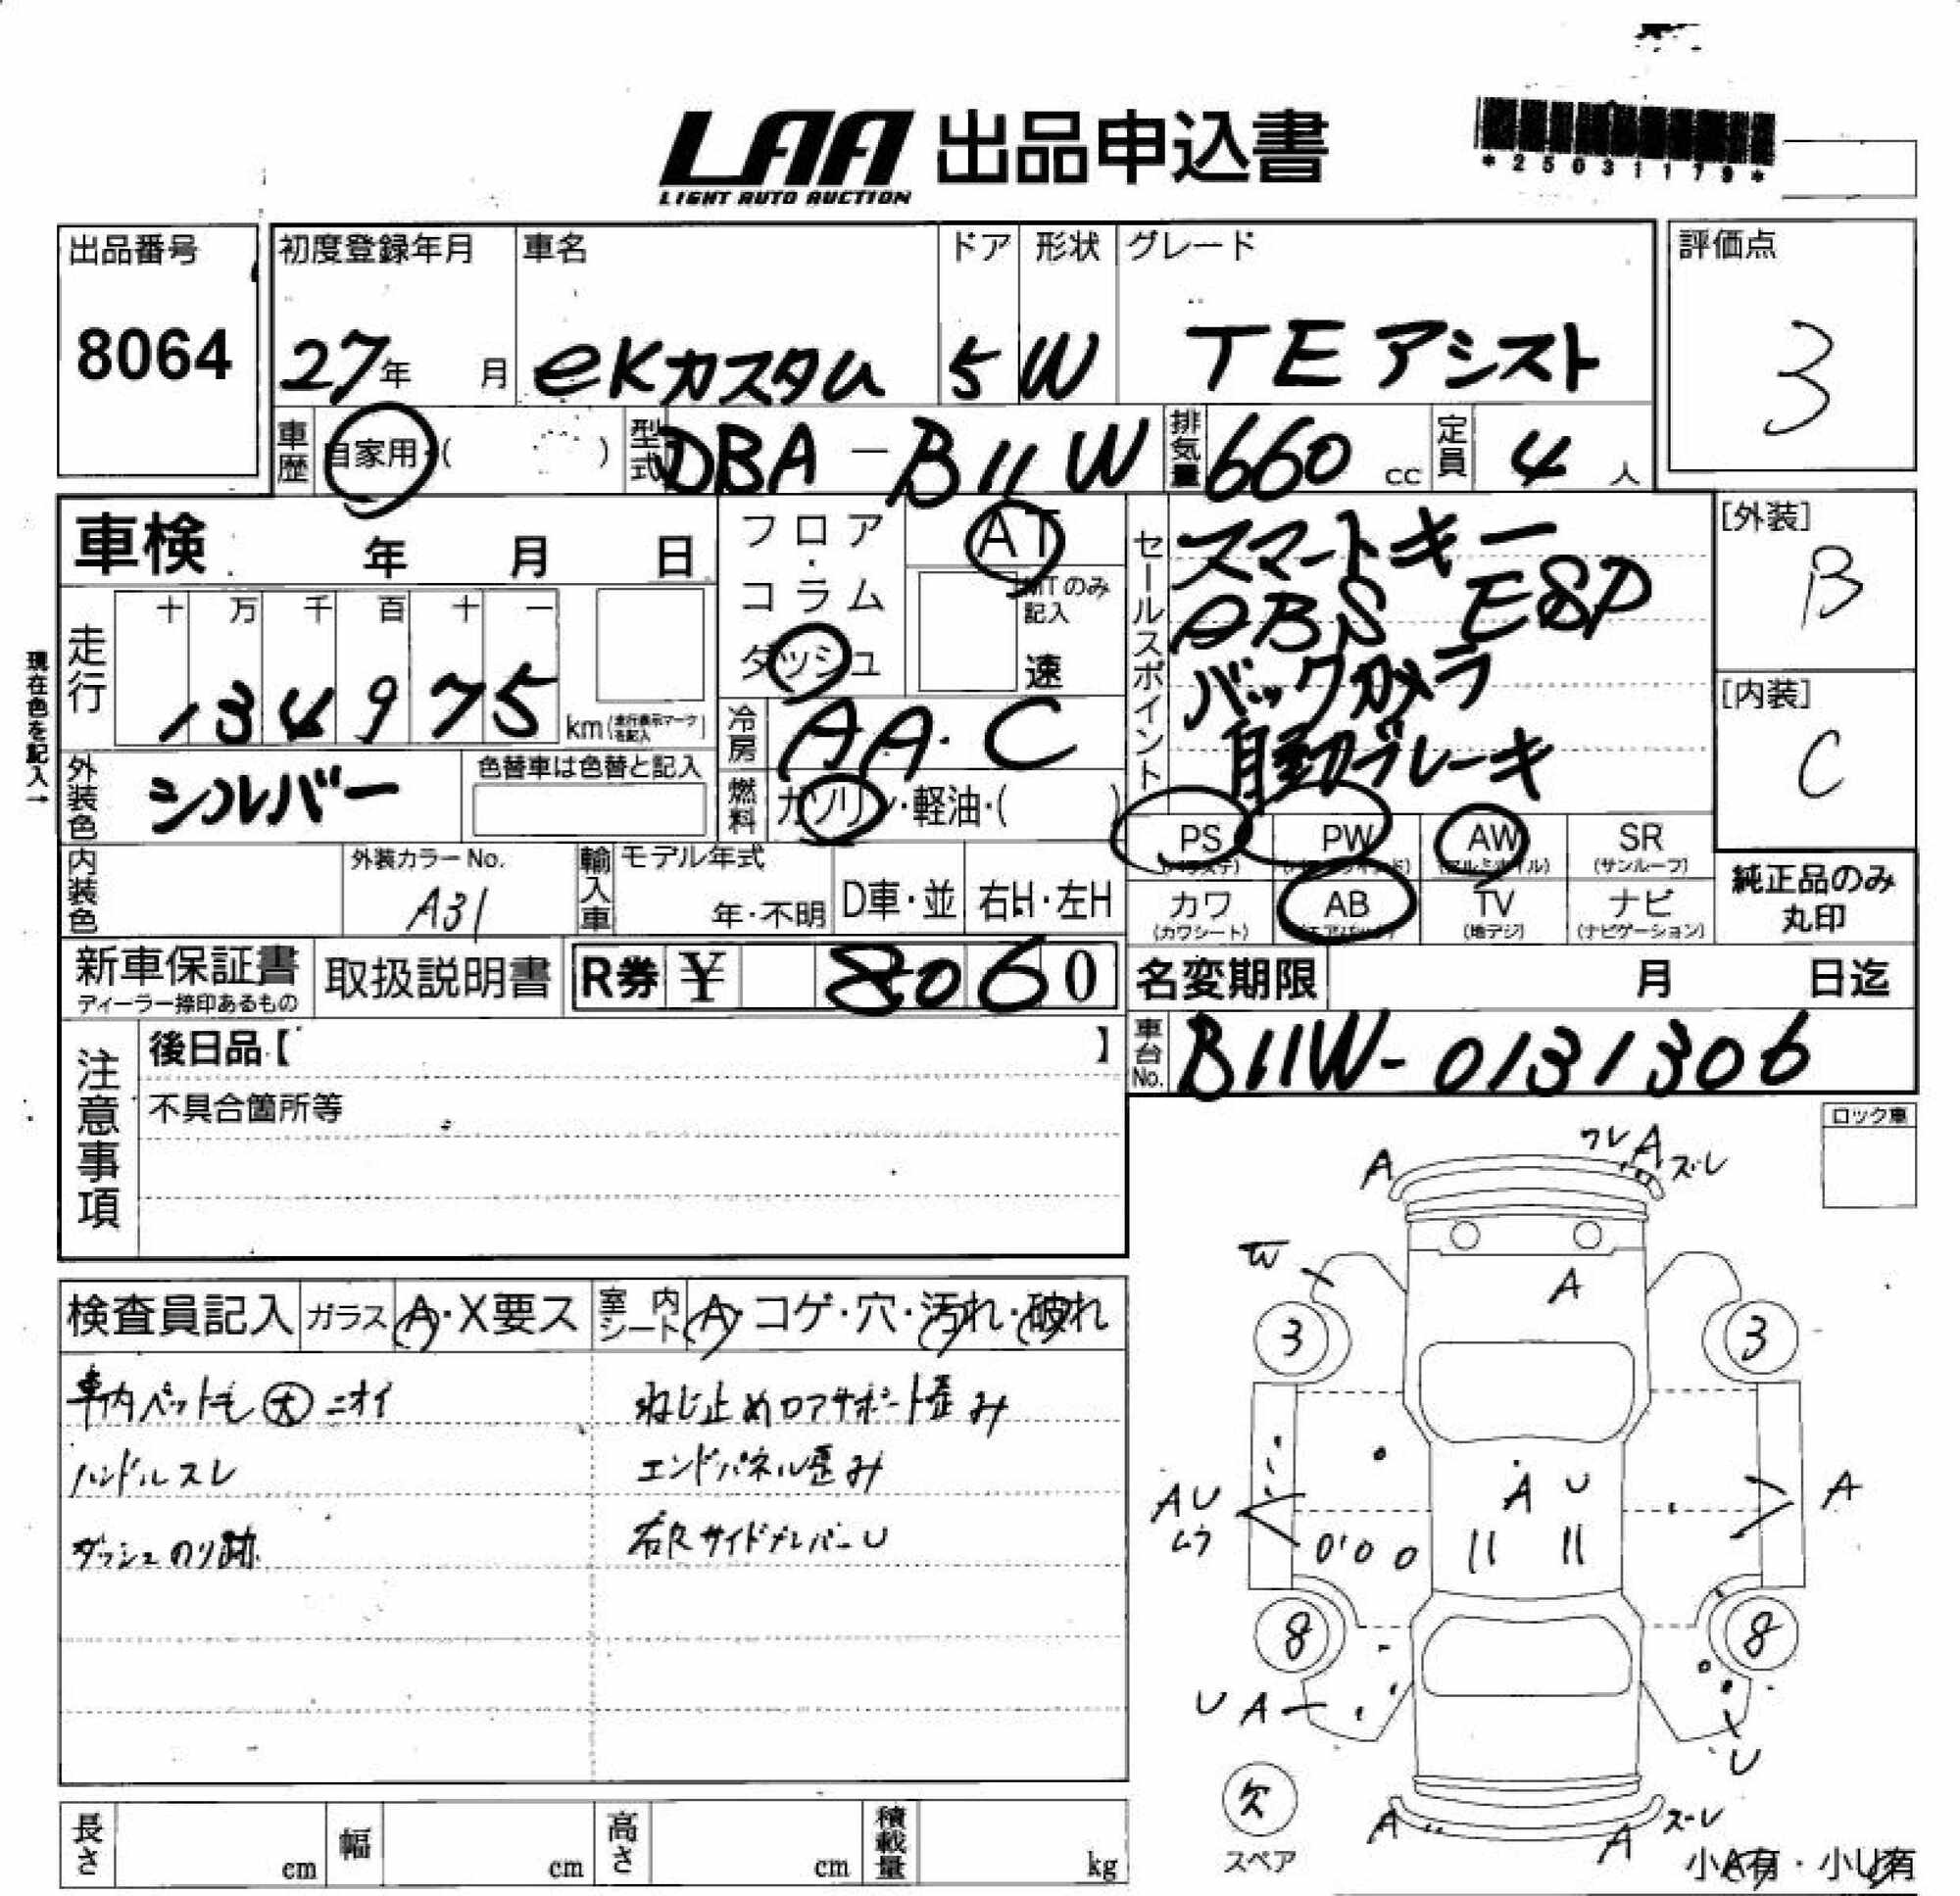 LAA 出品申込書
LIGHT AUTO AUCTION
*25031179*
出品番号 8064
初度登録年月 27年 月
車名 eKカスタム
ドア 5
形状 W
グレード TE アシスト
評価点 3
車歴 自家用・( )
型式 DBA-B11W
排気量 660 cc
定員 4 人
車検 年 月 日
フロア・コラム ダッシュ
AT
MTのみ記入
速
セールスポイント
スマートキー
ABS ESP
バックカメラ
自動ブレーキ
[外装] B
[内装] C
現在色を記入→
走行 十 万 千 百 十 一
134975 km(走行表示マークを記入)
冷房 AA・C
外装色 シルバー
色替車は色替と記入
燃料 ガソリン・軽油・( )
PS (パワステ)
PW (パワーウィンド)
AW (アルミホイル)
SR (サンルーフ)
カワ (カワシート)
AB (エアバッグ)
TV (地デジ)
ナビ (ナビゲーション)
純正品のみ丸印
内装色
外装カラーNo. A31
輸入車 モデル年式 年・不明
D車・並 右H・左H
新車保証書 ディーラー捺印あるもの
取扱説明書
R券 ¥ 8060
名変期限 月 日迄
車台No. B11W-0131306
注意事項
後日品【 】
不具合箇所等
ロック車
検査員記入 ガラス A・X要ス 室内シート A・コゲ・穴・汚れ・破れ
車内ペット毛 大 ニオイ
ハンドルスレ
ダッシュのり跡
ねじ止めロアサポート歪み
エンドパネル歪み
右RサイドメンバーU
A
ワレ A ズレ
W
A
3 3
AU
ムラ
A U
A
8 8
UA
U
欠
スペア
A
A ズレ
小A有・小U有
長さ cm
幅 cm
高さ cm
積載量 kg